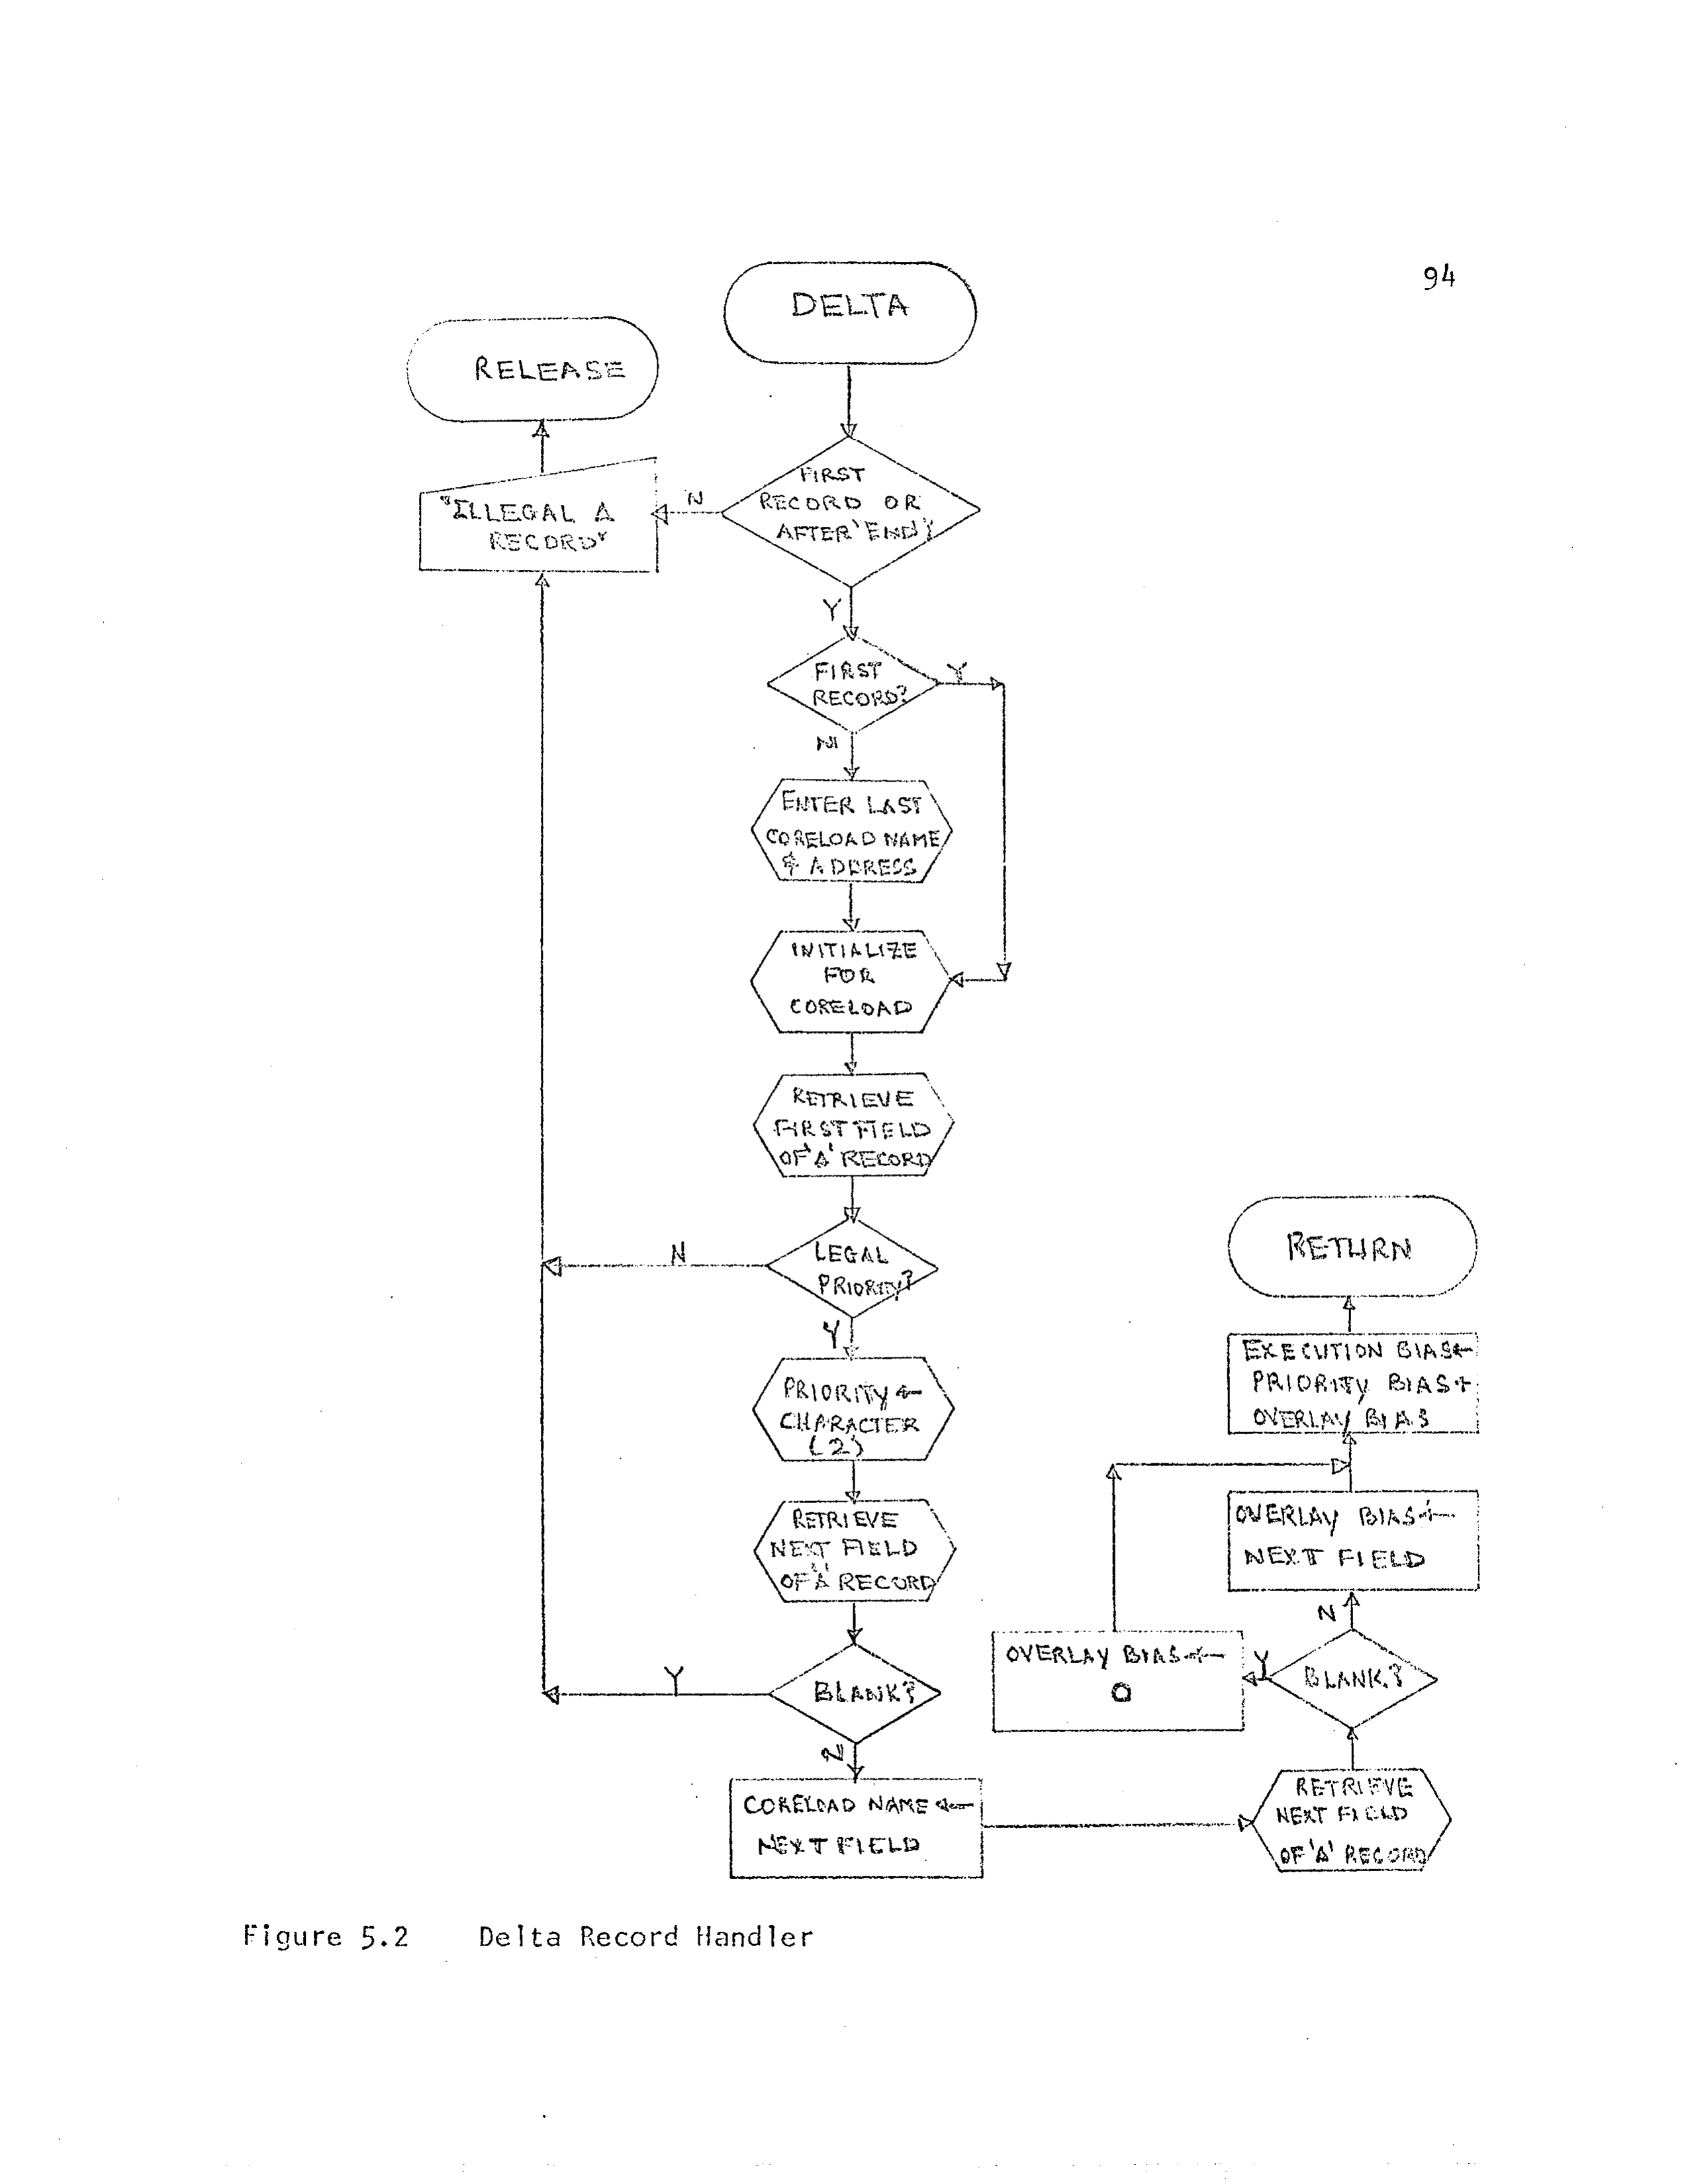 94
DELTA
RELEASE
FIRST
RECORD OR
AFTER 'END'?
N
"ILLEGAL Δ
RECORD"
Y
FIRST
RECORD?
Y
N
ENTER LAST
CORELOAD NAME
& ADDRESS
INITIALIZE
FOR
CORELOAD
RETRIEVE
FIRST FIELD
OF 'Δ' RECORD
LEGAL
PRIORITY?
N
Y
PRIORITY ←
CHARACTER
(2)
RETRIEVE
NEXT FIELD
OF 'Δ' RECORD
BLANK?
Y
N
CORELOAD NAME ←
NEXT FIELD
RETRIEVE
NEXT FIELD
OF 'Δ' RECORD
BLANK?
Y
OVERLAY BIAS ←
0
N
OVERLAY BIAS ←
NEXT FIELD
EXECUTION BIAS ←
PRIORITY BIAS +
OVERLAY BIAS
RETURN
Figure 5.2 Delta Record Handler